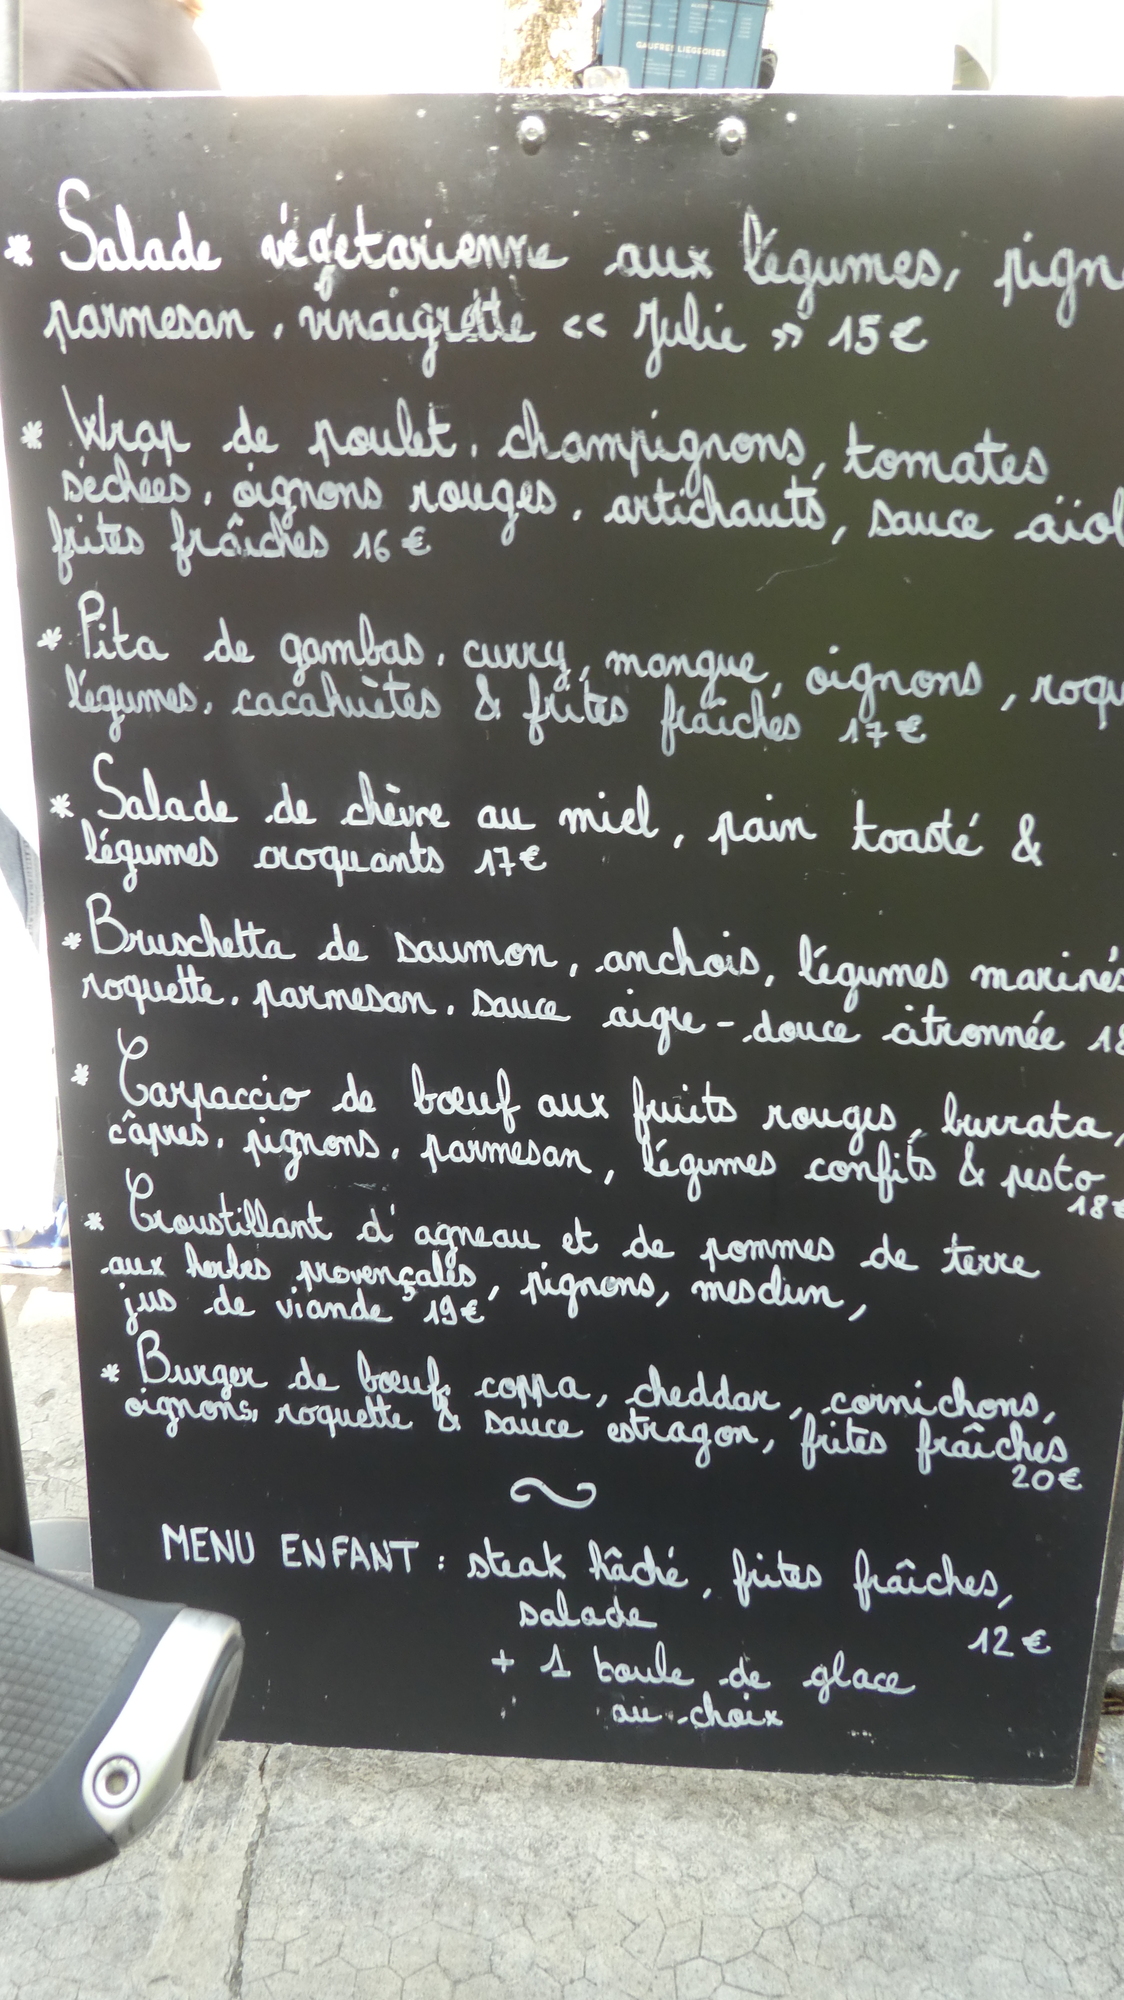 GAUFRES LIÉGEOISES
* Salade végétarienne aux légumes, pign
parmesan, vinaigrette << Julie >> 15€
* Wrap de poulet, champignons, tomates
séchées, oignons rouges, artichauts, sauce aïol
frites fraîches 16€
* Pita de gambas, curry, mangue, oignons, roqu
légumes, cacahuètes & frites fraîches 17€
* Salade de chèvre au miel, pain toasté &
légumes croquants 17€
* Bruschetta de saumon, anchois, légumes marinés
roquette, parmesan, sauce aigre-douce citronnée 18
* Carpaccio de bœuf aux fruits rouges, burrata,
câpres, pignons, parmesan, légumes confits & pesto
18€
* Croustillant d'agneau et de pommes de terre
aux herbes provençales, pignons, mesclun,
jus de viande 19€
* Burger de bœuf, coppa, cheddar, cornichons,
oignons, roquette & sauce estragon, frites fraîches
20€
MENU ENFANT : steak hâché, frites fraîches,
salade
12€
+ 1 boule de glace
au choix